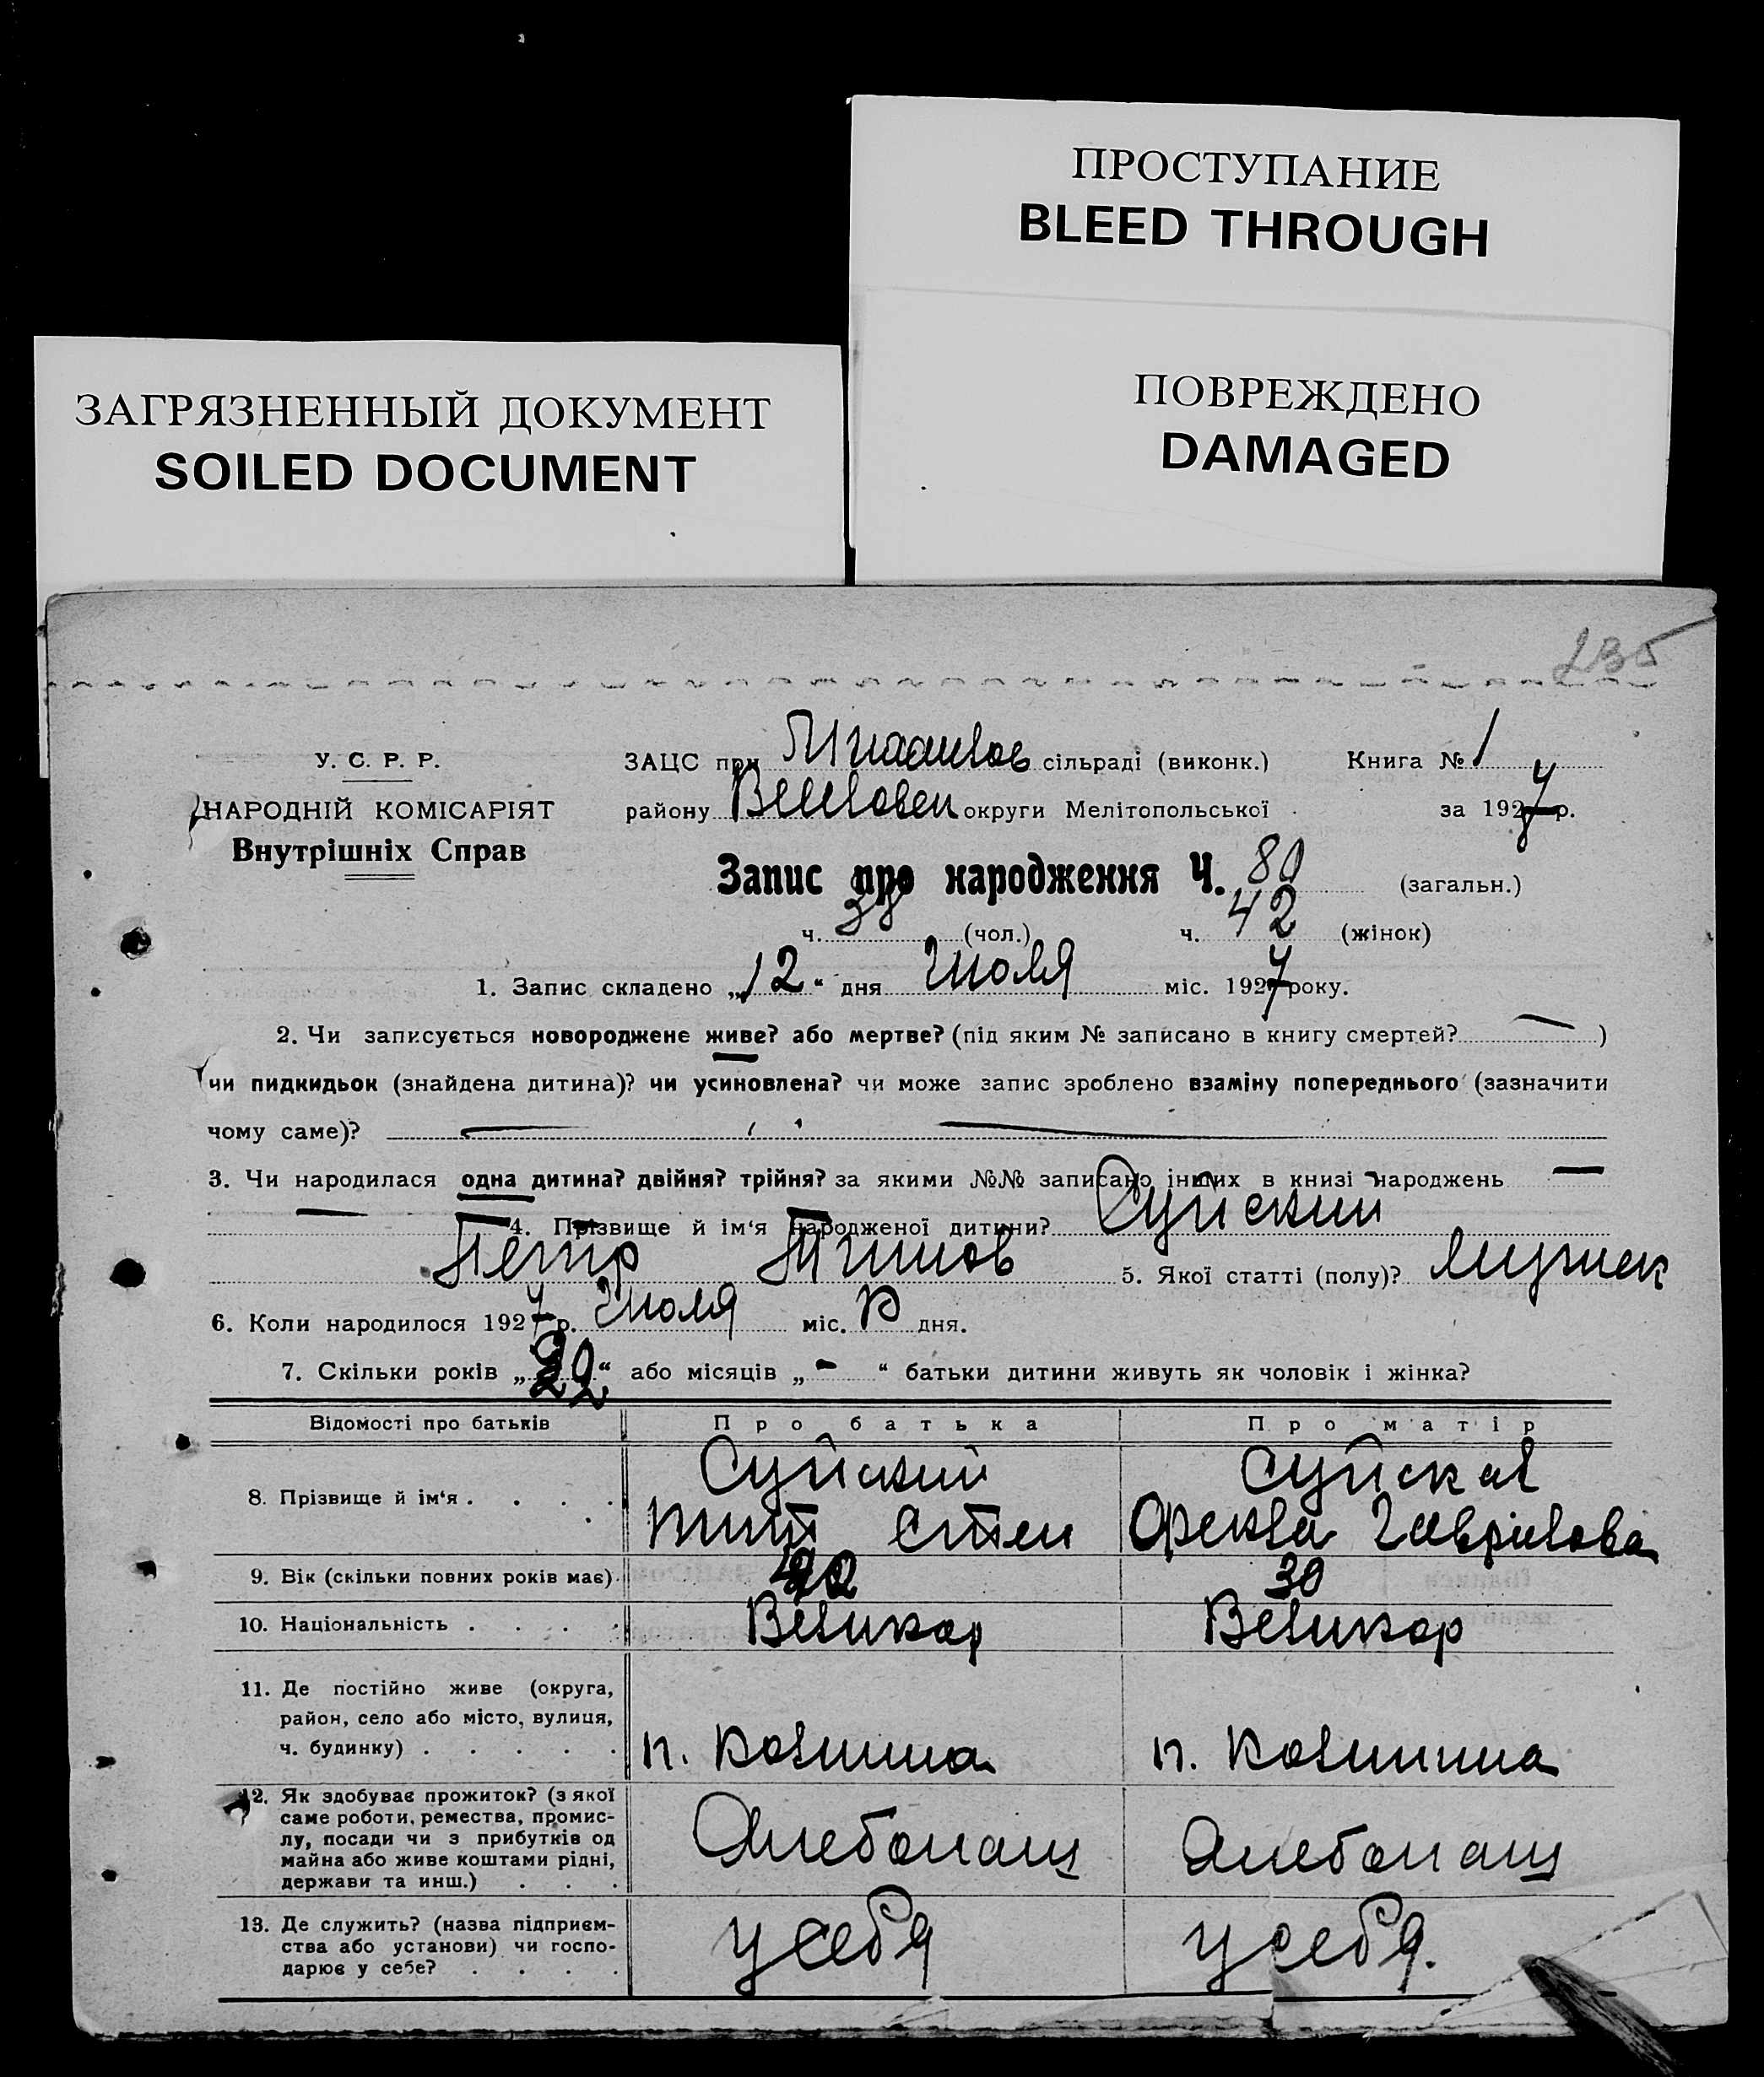 ПРОСТУПАНИЕ
BLEED THROUGH
ПОВРЕЖДЕНО
DAMAGED
ЗАГРЯЗНЕННЫЙ ДОКУМЕНТ
SOILED DOCUMENT
235
У. С. Р. Р.
НАРОДНІЙ КОМІСАРІЯТ
Внутрішніх Справ
ЗАЦС при сільраді (виконк.) Книга № 1
району округи Мелітопольської за 1927 р.
Запис про народження Ч. 80 (загальн.)
ч. 38 (чол.) ч. 42 (жінок)
1. Запис складено „12“ дня Июля міс. 1927 року.
2. Чи записується новороджене живе? або мертве? (під яким № записано в книгу смертей? — )
чи пидкидьок (знайдена дитина)? чи усиновлена? чи може запис зроблено взаміну попереднього (зазначити
чому саме)? —
3. Чи народилася одна дитина? двійня? трійня? за якими №№ записано інших в книзі народжень —
— 4. Прізвище й ім'я народженої дитини? Суйский
Петр Титов 5. Якої статті (полу)? мужск
6. Коли народилося 1927 р. Июля міс. дня.
7. Скільки років „ “ або місяців „ - “ батьки дитини живуть як чоловік і жінка?
Відомості про батьків Про батька Про матір
8. Прізвище й ім'я . . . . Суйский Суйская
Тит Степ Гаврилова
9. Вік (скільки повних років має) 30
10. Національність . . . . Великор Великор
11. Де постійно живе (округа,
район, село або місто, вулиця,
ч. будинку) . . . . . п. Калинина п. Калинина
12. Як здобуває прожиток? (з якої
саме роботи, ремества, промис-
лу, посади чи з прибутків од
майна або живе коштами рідні,
держави та инш.) . . . Хлебопащ Хлебопащ
13. Де служить? (назва підприєм-
ства або установи) чи госпо-
дарює у себе? . . . . у себя у себя.